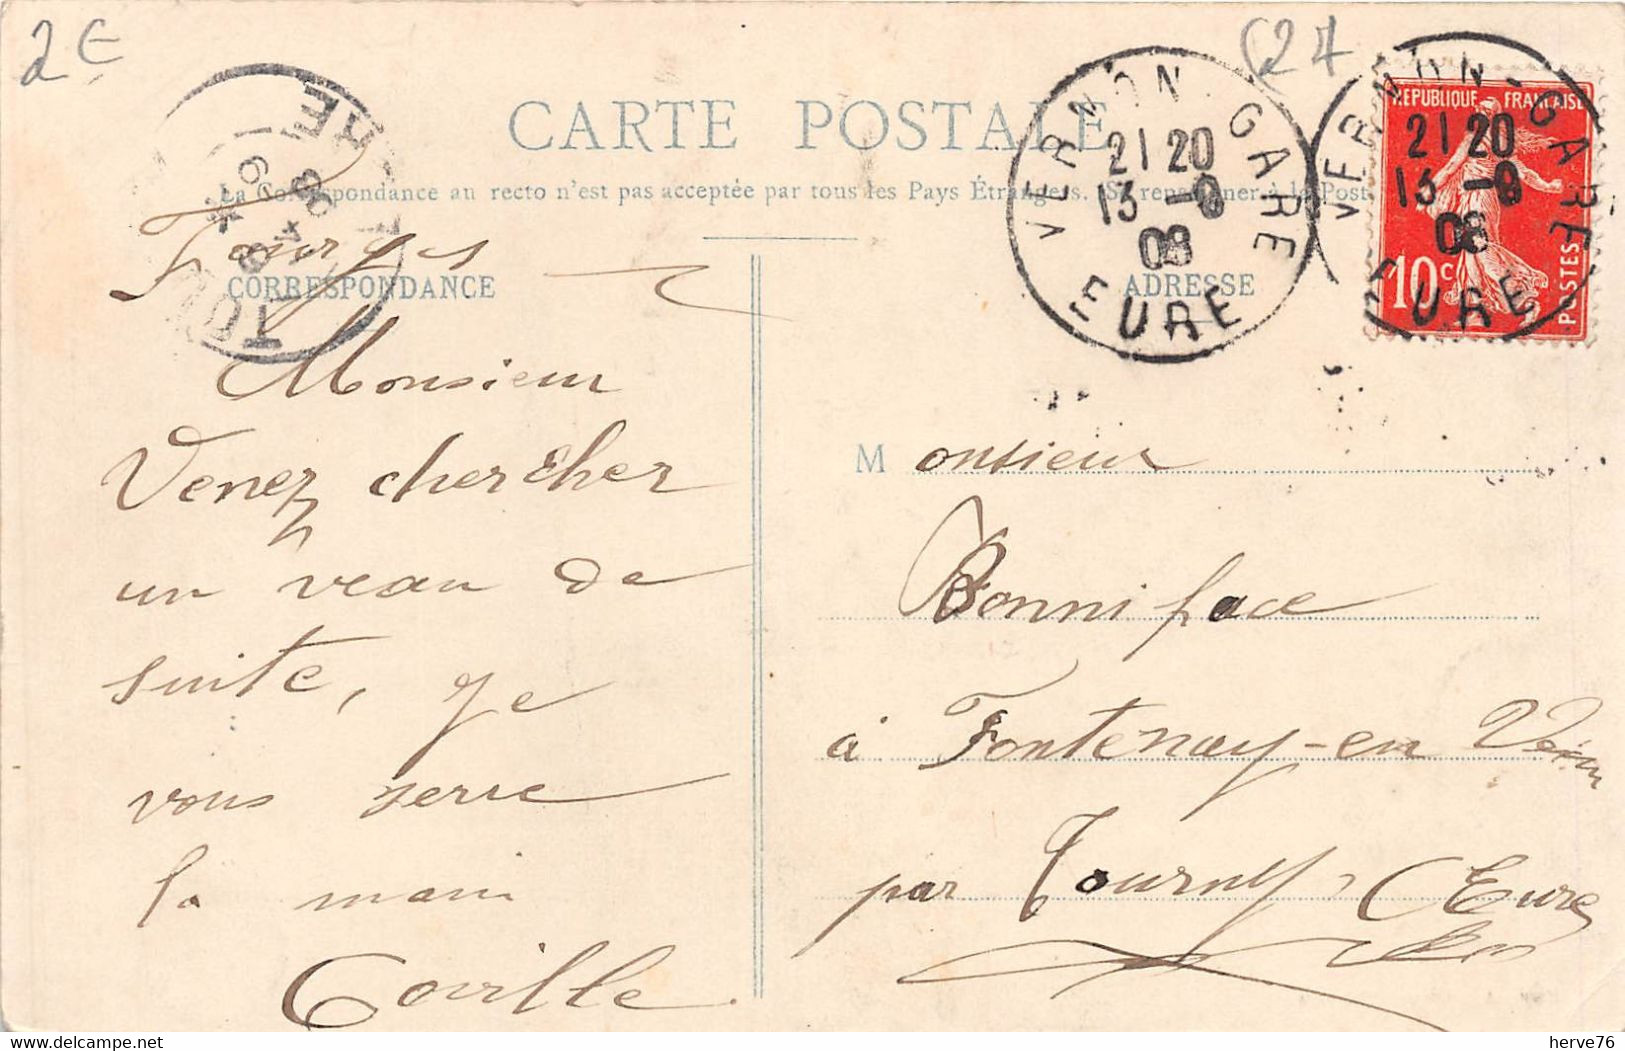 2€
(27
CARTE POSTALE
La Correspondance au recto n'est pas acceptée par tous les Pays Étrangers. (Se renseigner à la Post
VERNON-GARE
21 20
13 -9
08
EURE
VERNON-GARE
21 20
13 -9
08
EURE
REPUBLIQUE FRANÇAISE
10c
POSTES
CORRESPONDANCE
ADRESSE
Fourges
Monsieur
Venez chercher
un veau de
suite, je
vous serre
la main
Coville
Monsieur
Bonniface
à Fontenay-en Vexin
par Tourny, (Eure)
herve76